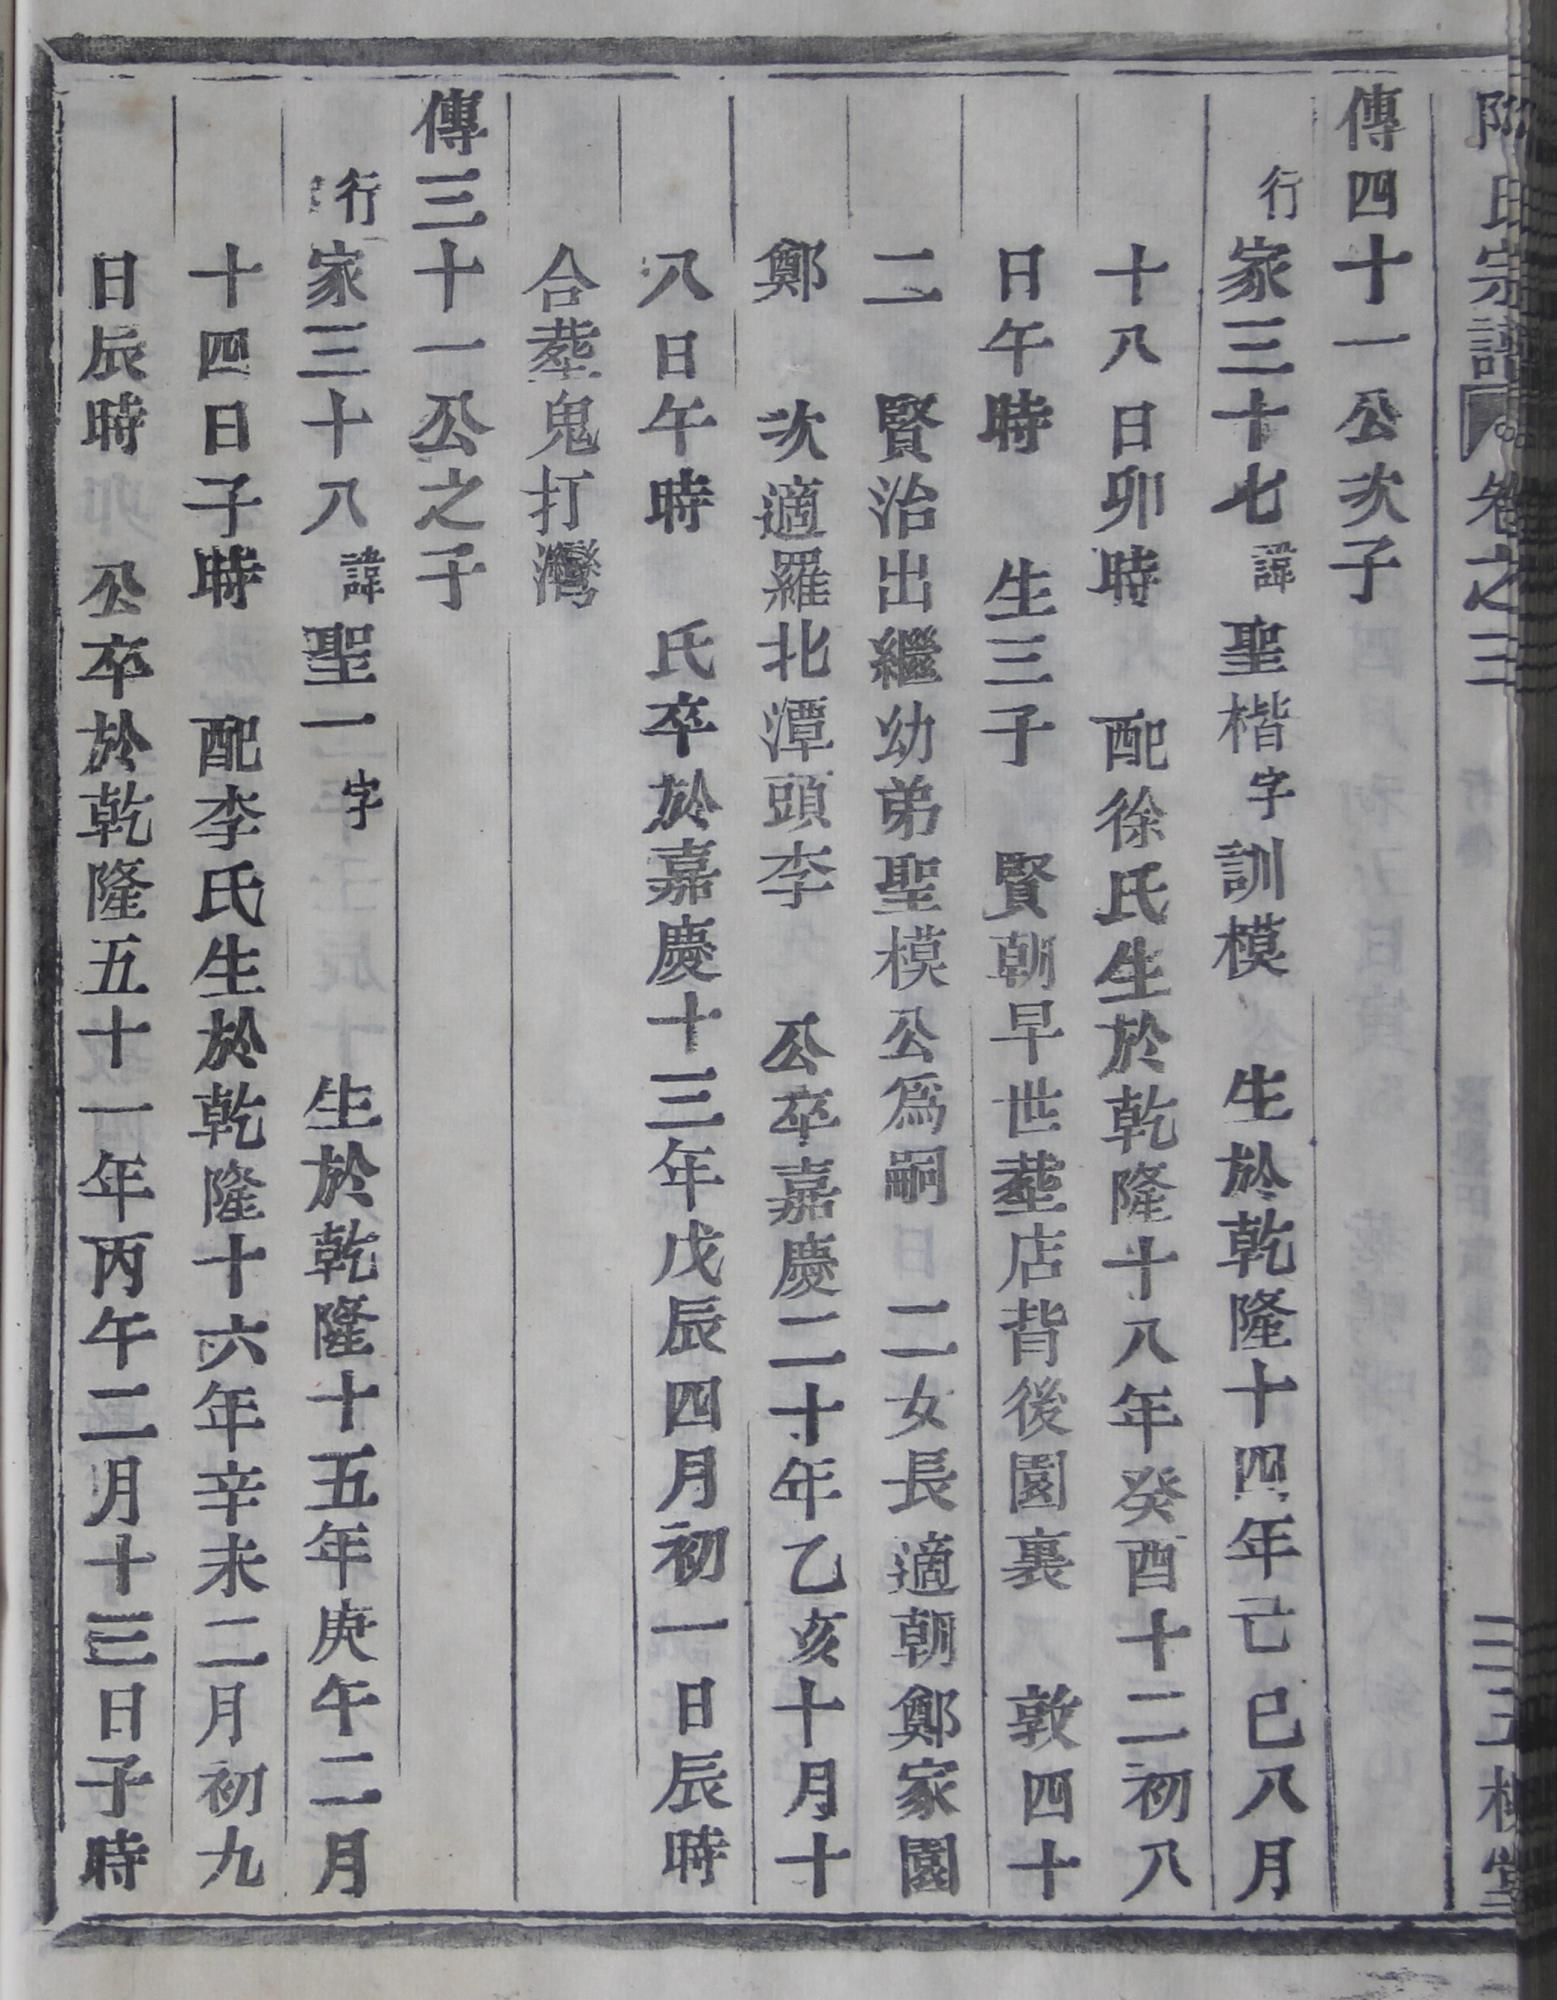 氏宗譜 卷之三
傳四十一公次子
行家三十七諱聖楷字訓模 生於乾隆十四年己巳八月
十八日卯時 配徐氏生於乾隆十八年癸酉十二初八
日午時 生三子 賢朝早世塟店背後園裏 敦四十
二 賢治出繼幼弟聖模公爲嗣 二女長適朝鄭家園
鄭 次適羅北潭頭李 公卒嘉慶二十年乙亥十月十
八日午時 氏卒於嘉慶十三年戊辰四月初一日辰時
合塟鬼打灣
傳三十一公之子
行家三十八諱聖一字 生於乾隆十五年庚午二月
十四日子時 配李氏生於乾隆十六年辛未二月初九
日辰時 公卒於乾隆五十一年丙午二月十三日子時